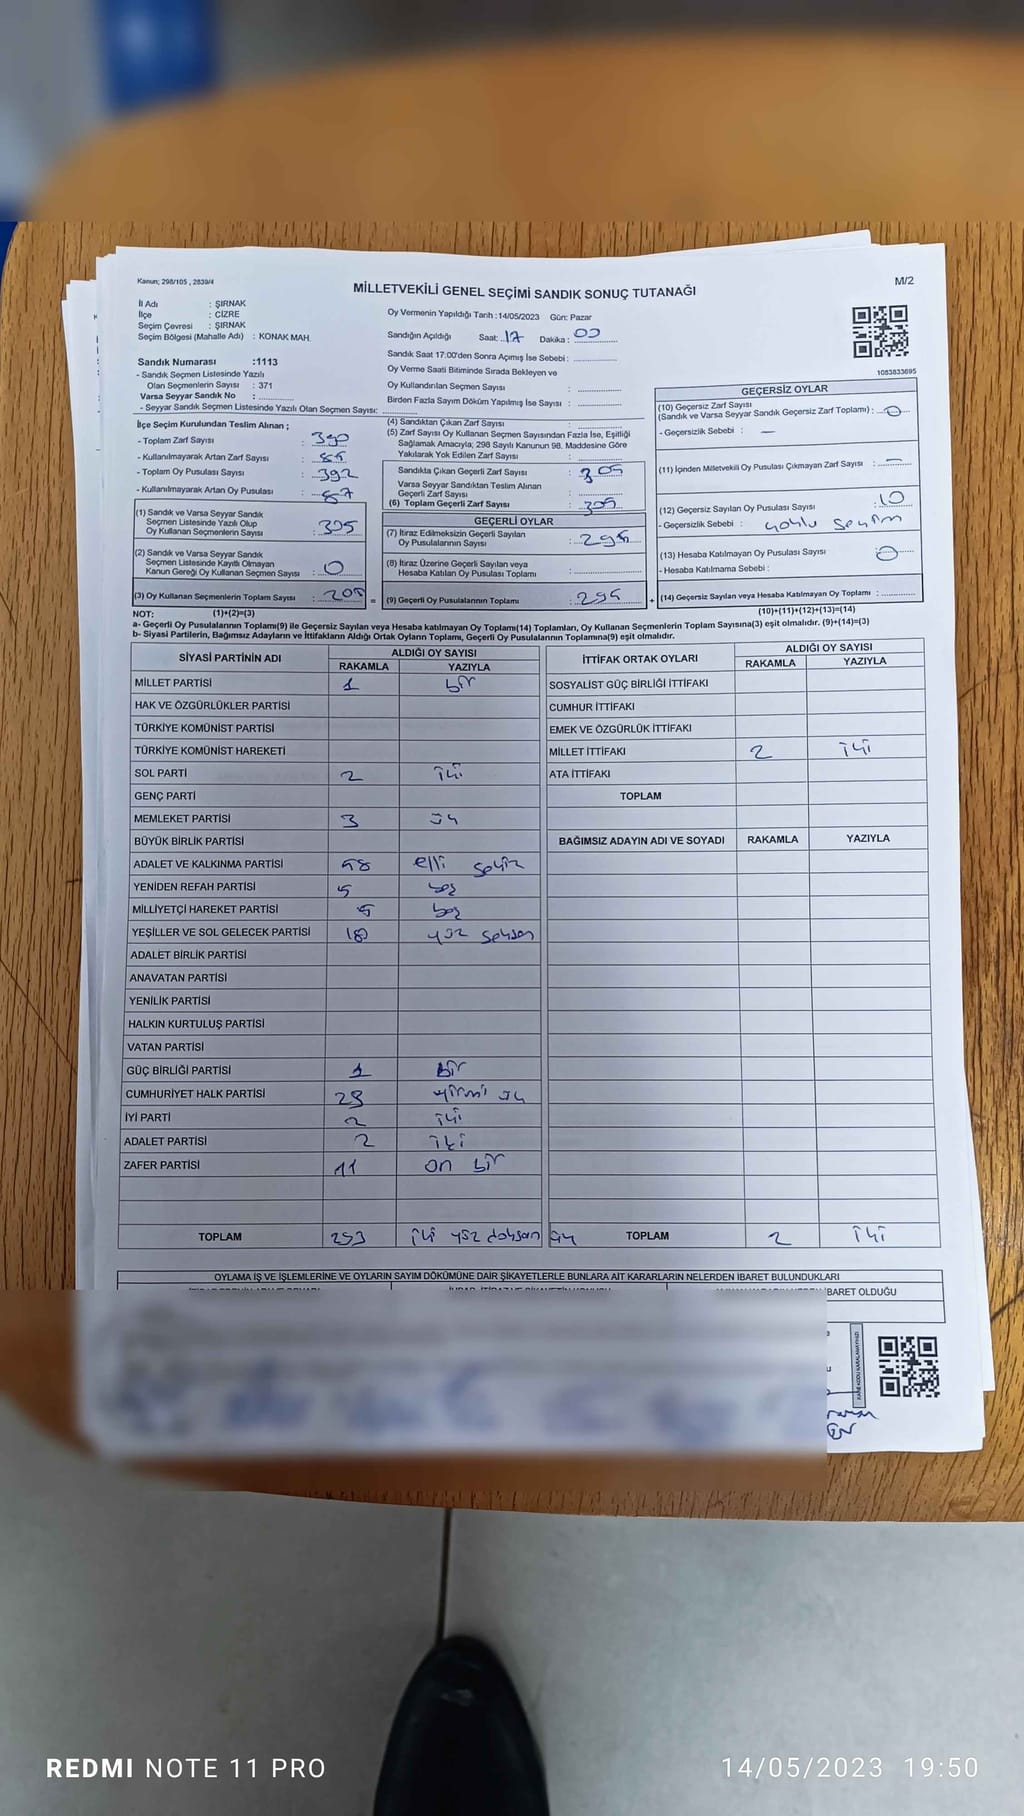 Kanun; 298/105 , 2839/4
MİLLETVEKİLİ GENEL SEÇİMİ SANDIK SONUÇ TUTANAĞI
M/2
İl Adı : ŞIRNAK
İlçe : CİZRE
Seçim Çevresi : ŞIRNAK
Seçim Bölgesi (Mahalle Adı) : KONAK MAH.
Oy Vermenin Yapıldığı Tarih :14/05/2023 Gün: Pazar
Sandığın Açıldığı Saat: 17 Dakika: 00
Sandık Saat 17:00'den Sonra Açılmış İse Sebebi :
Oy Verme Saati Bitiminde Sırada Bekleyen ve
Oy Kullandırılan Seçmen Sayısı :
Birden Fazla Sayım Döküm Yapılmış İse Sayısı :
1083833695
Sandık Numarası :1113
- Sandık Seçmen Listesinde Yazılı
Olan Seçmenlerin Sayısı : 371
Varsa Seyyar Sandık No :
- Seyyar Sandık Seçmen Listesinde Yazılı Olan Seçmen Sayısı:
İlçe Seçim Kurulundan Teslim Alınan ;
- Toplam Zarf Sayısı : 390
- Kullanılmayarak Artan Zarf Sayısı : 85
- Toplam Oy Pusulası Sayısı : 392
- Kullanılmayarak Artan Oy Pusulası : 87
(1) Sandık ve Varsa Seyyar Sandık
Seçmen Listesinde Yazılı Olup
Oy Kullanan Seçmenlerin Sayısı : 305
(2) Sandık ve Varsa Seyyar Sandık
Seçmen Listesinde Kayıtlı Olmayan
Kanun Gereği Oy Kullanan Seçmen Sayısı : 0
(3) Oy Kullanan Seçmenlerin Toplam Sayısı :
(4) Sandıktan Çıkan Zarf Sayısı :
(5) Zarf Sayısı Oy Kullanan Seçmen Sayısından Fazla İse, Eşitliği
Sağlamak Amacıyla; 298 Sayılı Kanunun 98. Maddesine Göre
Yakılarak Yok Edilen Zarf Sayısı :
Sandıkta Çıkan Geçerli Zarf Sayısı : 305
Varsa Seyyar Sandıktan Teslim Alınan
Geçerli Zarf Sayısı :
(6) Toplam Geçerli Zarf Sayısı : 305
GEÇERLİ OYLAR
(7) İtiraz Edilmeksizin Geçerli Sayılan
Oy Pusulalarının Sayısı : 295
(8) İtiraz Üzerine Geçerli Sayılan veya
Hesaba Katılan Oy Pusulası Toplamı :
= (9) Geçerli Oy Pusulalarının Toplamı : 295 +
GEÇERSİZ OYLAR
(10) Geçersiz Zarf Sayısı
(Sandık ve Varsa Seyyar Sandık Geçersiz Zarf Toplamı) : 0
- Geçersizlik Sebebi : —
(11) İçinden Milletvekili Oy Pusulası Çıkmayan Zarf Sayısı : —
(12) Geçersiz Sayılan Oy Pusulası Sayısı : 10
- Geçersizlik Sebebi :
(13) Hesaba Katılmayan Oy Pusulası Sayısı : 0
- Hesaba Katılmama Sebebi :
(14) Geçersiz Sayılan veya Hesaba Katılmayan Oy Toplamı :
NOT: (1)+(2)=(3) (10)+(11)+(12)+(13)=(14)
a- Geçerli Oy Pusulalarının Toplamı(9) ile Geçersiz Sayılan veya Hesaba katılmayan Oy Toplamı(14) Toplamları, Oy Kullanan Seçmenlerin Toplam Sayısına(3) eşit olmalıdır. (9)+(14)=(3)
b- Siyasi Partilerin, Bağımsız Adayların ve İttifakların Aldığı Ortak Oyların Toplamı, Geçerli Oy Pusulalarının Toplamına(9) eşit olmalıdır.
SİYASİ PARTİNİN ADI ALDIĞI OY SAYISI
RAKAMLA YAZIYLA
MİLLET PARTİSİ 1 bir
HAK VE ÖZGÜRLÜKLER PARTİSİ
TÜRKİYE KOMÜNİST PARTİSİ
TÜRKİYE KOMÜNİST HAREKETİ
SOL PARTİ 2 iki
GENÇ PARTİ
MEMLEKET PARTİSİ 3 üç
BÜYÜK BİRLİK PARTİSİ
ADALET VE KALKINMA PARTİSİ 58 elli sekiz
YENİDEN REFAH PARTİSİ 5 beş
MİLLİYETÇİ HAREKET PARTİSİ 5 beş
YEŞİLLER VE SOL GELECEK PARTİSİ 180 yüz seksen
ADALET BİRLİK PARTİSİ
ANAVATAN PARTİSİ
YENİLİK PARTİSİ
HALKIN KURTULUŞ PARTİSİ
VATAN PARTİSİ
GÜÇ BİRLİĞİ PARTİSİ 1 bir
CUMHURİYET HALK PARTİSİ 23 yirmi üç
İYİ PARTİ 2 iki
ADALET PARTİSİ 2 iki
ZAFER PARTİSİ 11 on bir
TOPLAM 293 iki yüz doksan üç
İTTİFAK ORTAK OYLARI ALDIĞI OY SAYISI
RAKAMLA YAZIYLA
SOSYALİST GÜÇ BİRLİĞİ İTTİFAKI
CUMHUR İTTİFAKI
EMEK VE ÖZGÜRLÜK İTTİFAKI
MİLLET İTTİFAKI 2 iki
ATA İTTİFAKI
TOPLAM
BAĞIMSIZ ADAYIN ADI VE SOYADI RAKAMLA YAZIYLA
TOPLAM 2 iki
OYLAMA İŞ VE İŞLEMLERİNE VE OYLARIN SAYIM DÖKÜMÜNE DAİR ŞİKAYETLERLE BUNLARA AİT KARARLARIN NELERDEN İBARET BULUNDUKLARI
BARET OLDUĞU
REDMI NOTE 11 PRO
14/05/2023 19:50